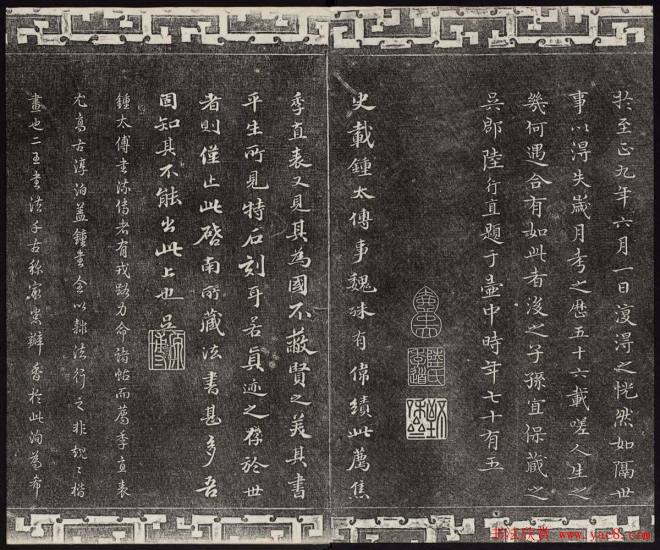 於至正九年六月一日復得之恍然如隔世
事以得失歲月考之歷五十六載嗟人生之
幾何遇合有如此者後之子孫宜保藏之
吳郡陸行直題于壺中時年七十有五
陸氏
史載鍾太傅事魏殊有偉績此薦焦
季直表又見其為國不蔽賢之美其書
平生所見特石刻耳若真迹之存於世
者則僅止此啓南所藏法書甚多吾
固知其不能出此上也吳
鍾太傅書流傳者有戎路力命諸帖而薦季直表
尤高古淳泊蓋鍾書全以隸法行之非規規楷
畫也二王書法千古稱宗
書法欣賞 www.yac8.com